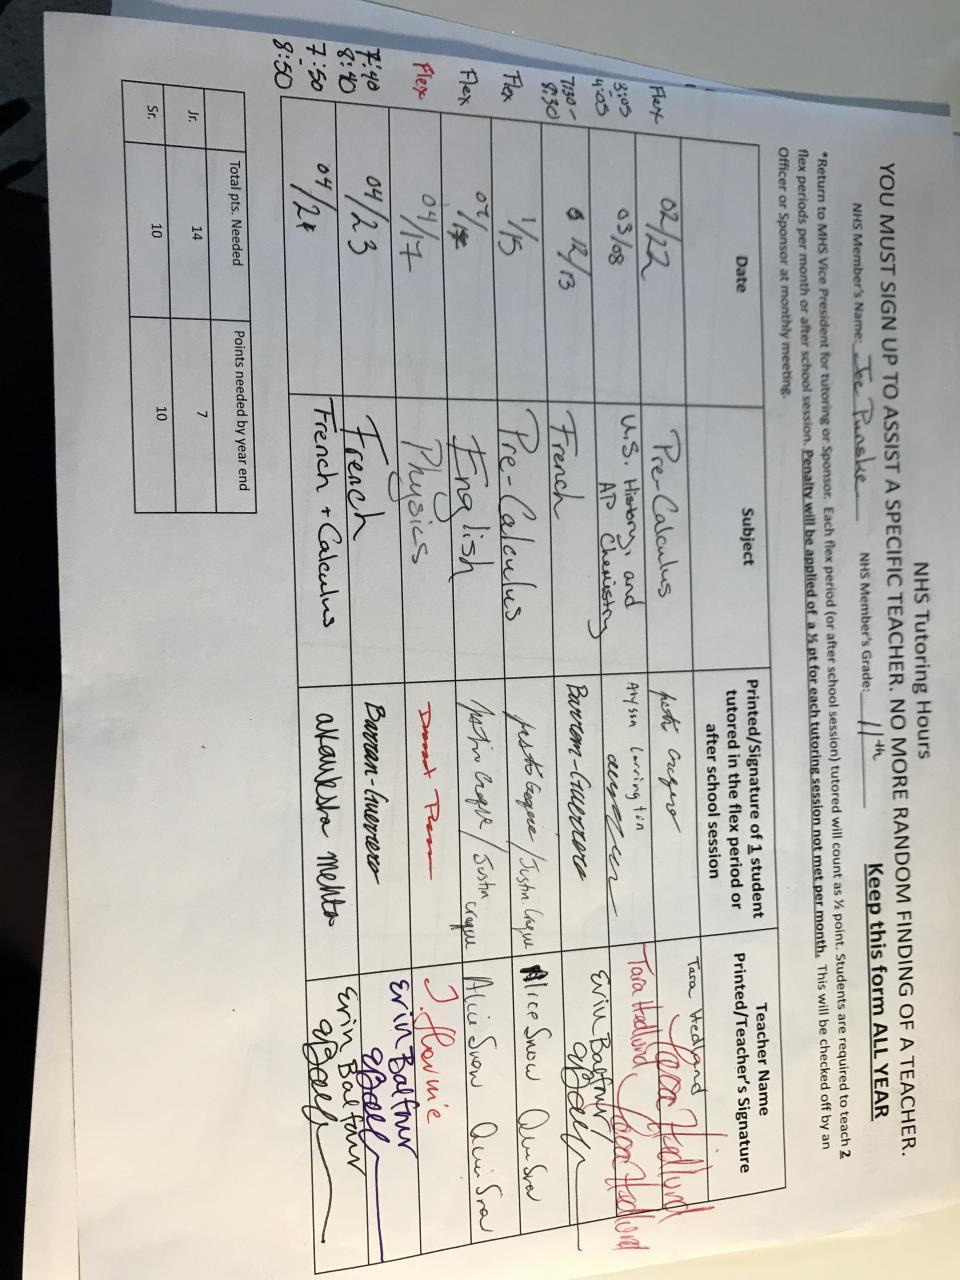 NHS Tutoring Hours
YOU MUST SIGN UP TO ASSIST A SPECIFIC TEACHER. NO MORE RANDOM FINDING OF A TEACHER.
NHS Member's Name: Joe Punske NHS Member's Grade: 11th Keep this form ALL YEAR
*Return to MHS Vice President for tutoring or Sponsor. Each flex period (or after school session) tutored will count as ½ point. Students are required to teach 2
flex periods per month or after school session. Penalty will be applied of a ½ pt for each tutoring session not met per month. This will be checked off by an
Officer or Sponsor at monthly meeting.
Date Subject Printed/Signature of 1 student tutored in the flex period or after school session Teacher Name Printed/Teacher's Signature
Flex 02/22 Pre-Calculus Tara Hedlund Tara Hedlund
3:05 4:05 03/08 U.S. History, and AP Chemistry Alyssa Tara Hedlund, Tara Hedlund
7:30- 8:30 12/13 French Barran-Guerrero Erin Balfour
Flex 1/15 Pre-Calculus Justin Alice Snow
Flex English Justin / Justin Alice Snow
Flex 04/17 Physics
7:40 8:40 04/23 French Barran-Guerrero Erin Balfour
7:50 8:50 04/24 French + Calculus Mehta Erin Balfour
Total pts. Needed Points needed by year end
Jr. 14 7
Sr. 10 10